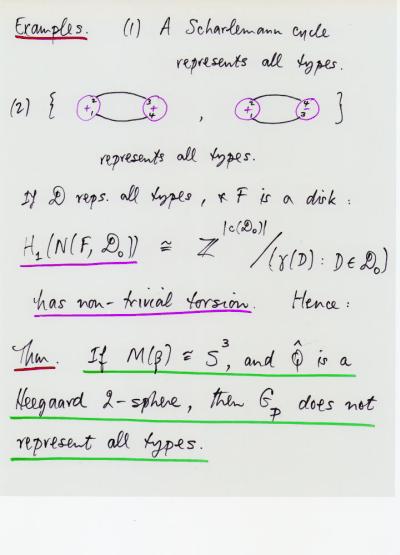 Examples. (1) A Scharlemann cycle
represents all types.
(2) { +2 1 3+ 4 , +2 1 4- 3 }
represents all types.
If D reps. all types, & F is a disk:
H₁(N(F, D₀)) ≅ Z^|c(D₀)| / (γ(D) : D ∈ D₀)
has non-trivial torsion. Hence:
Thm. If M(β) ≅ S³, and Q̂ is a
Heegaard 2-sphere, then G_P does not
represent all types.